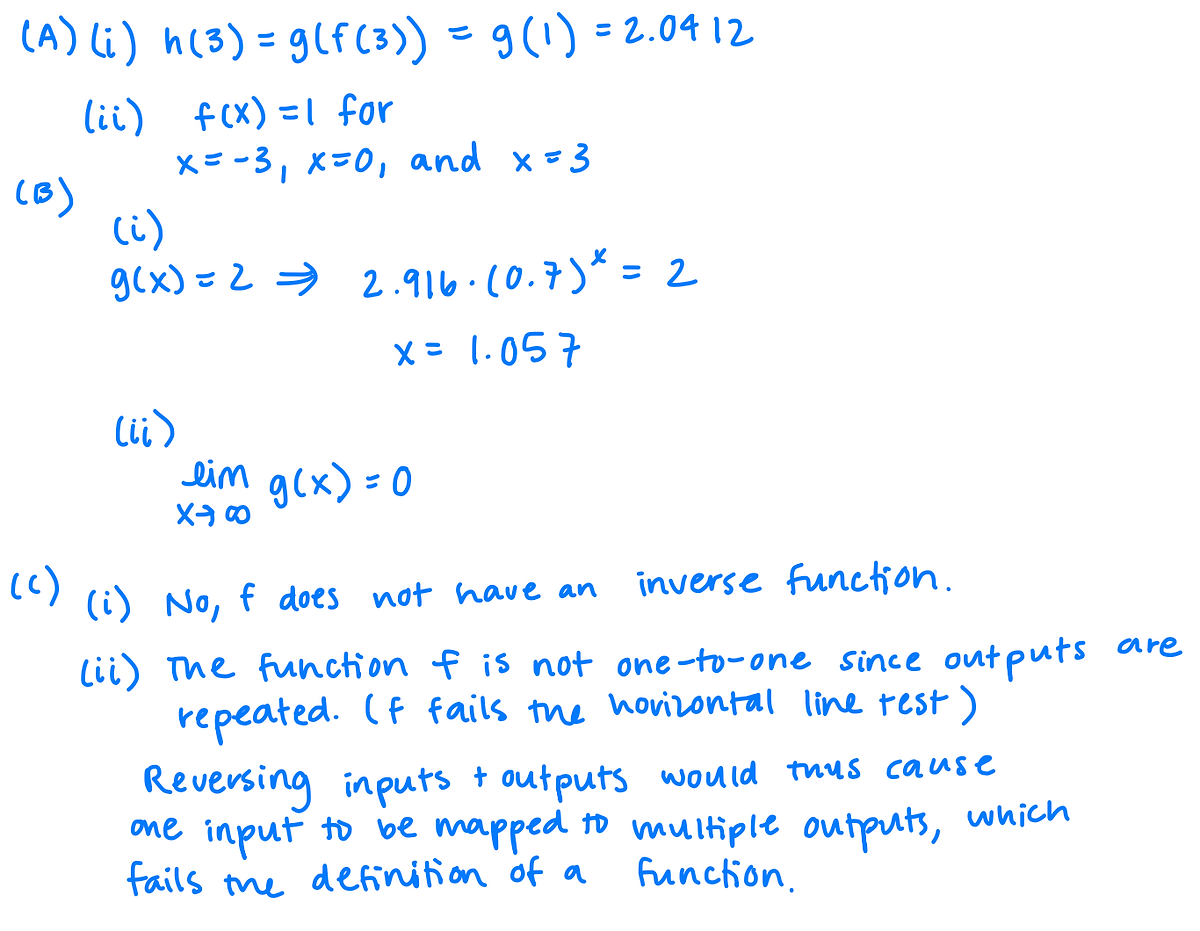 (A) (i) h(3) = g(f(3)) = g(1) = 2.0412
(ii) f(x) = 1 for
x = -3, x=0, and x = 3
(B)
(i)
g(x) = 2 ⇒ 2.916 · (0.7)^x = 2
x = 1.057
(ii)
lim g(x) = 0
x→∞
(C) (i) No, f does not have an inverse function.
(ii) The function f is not one-to-one since outputs are
repeated. (f fails the horizontal line test)
Reversing inputs + outputs would thus cause
one input to be mapped to multiple outputs, which
fails the definition of a function.